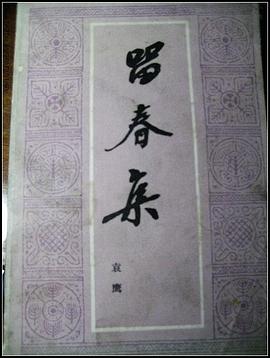 留春集
袁鹰